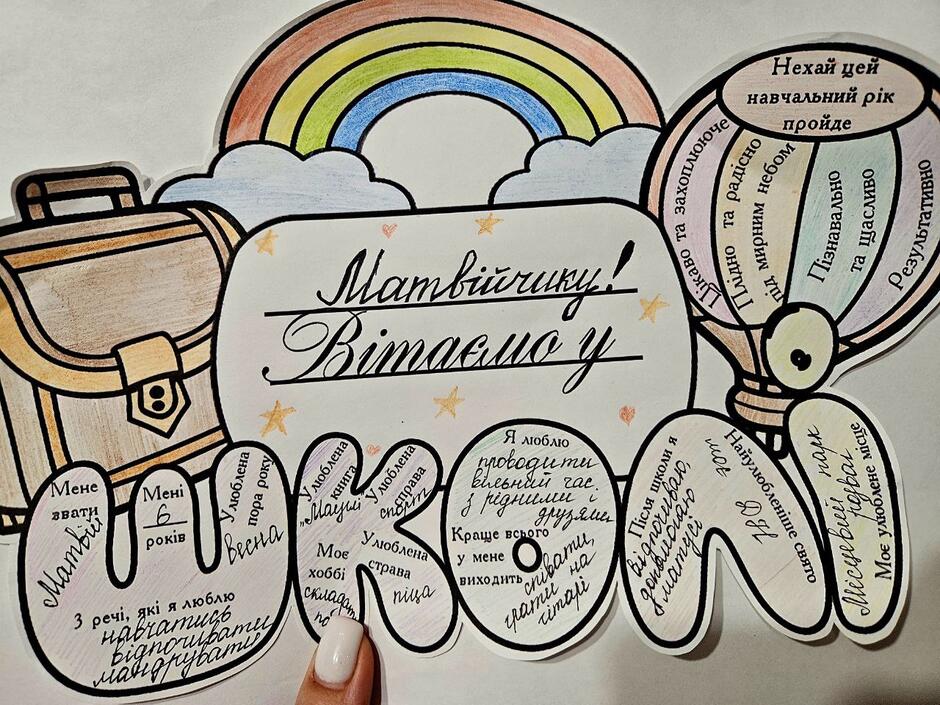 Нехай цей
навчальний рік
пройде
Цікаво та захоплююче
Плідно та радісно
під мирним небом
Пізнавально
та щасливо
Результативно
Матвійчику!
Вітаємо у
ШКОЛІ
Мене
звати
Матвій
Мені
6
років
Улюблена
пора року
Весна
3 речі, які я люблю
навчатись
відпочивати
мандрувати
Улюблена
книга
"Мауглі"
Улюблена
справа
спорт
Моє
хоббі
складати
Улюблена
страва
піца
Я люблю
проводити
вільний час
з рідними і
друзями
Краще всього
у мене
виходить
співати,
грати на
гітарі
Після школи я
відпочиваю,
допомагаю
матусі
Найулюбленіше свято
Моє улюблене місце